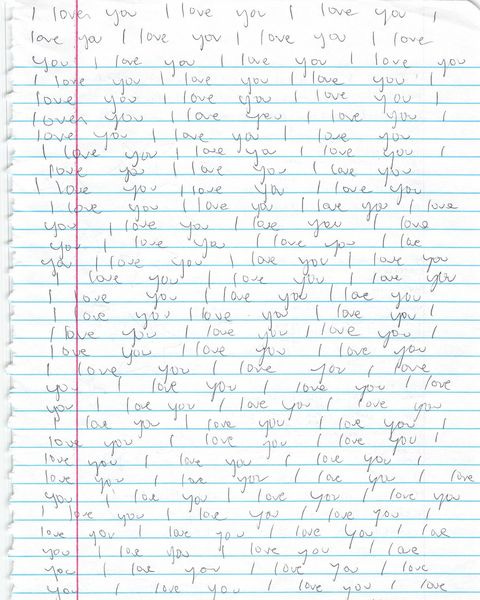 I love you I love you I love you I
love you I love you I love you I love
you I love you I love you I love you
I love you I love you I love you I
love you I love you I love you I
love you I love you I love you I
love you I love you I love you
I love you I love you I love you I
love you I love you I love you
I love you I love you I love you
I love you I love you I love you I love
you I love you I love you I love
you I love you I love you I love
you I love you I love you I love you
I love you I love you I love you
I love you I love you I love you
I love you I love you I love you I
I love you I love you I love you I
love you I love you I love you
I love you I love you I love
you I love you I love you I love
you I love you I love you I love you
I love you I love you I love you I
love you I love you I love you I
love you I love you I love you I
love you I love you I love you I love
you I love you I love you I love you
I love you I love you I love you I
love you I love you I love you I love
you I love you I love you I love
you I love you I love you I love
you I love you I love you I love